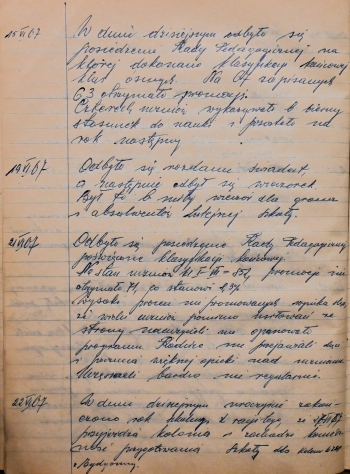 15 VI 67 W dniu dzisiejszym odbyło się
posiedzenie Rady Pedagogicznej na
której dokonano klasyfikacji końcowej
klas ósmych. Na 67 zapisanych
63 otrzymało promocję.
Czterech uczniów wykazywało b. bierny
stosunek do nauki i pozostało na
rok następny
19 VI 67 Odbyło się rozdanie świadectw,
a następnie odbył się wieczorek
Był to b. miły wieczór dla grona
i absolwentów tutejszej szkoły.
21 VI 67 Odbyło się posiedzenie Rady Pedagogicznej
poświęcone klasyfikacji końcowej.
Na stan uczniów kl. I - VII - 852, promocji nie
otrzymało 71, co stanowi
Wysoki procent nie promowanych wynika stąd,
że wielu uczniów pomimo
strony nauczycieli nie opanowało
programu. Rodzice nie przejawiali
i pewnej większej opieki nad uczniami
Uczęszczali bardzo nie regularnie.
22 VI 67 W dniu dzisiejszym uroczyście zakoń-
czono rok szkolny, z racji tego, że
przyjeżdża kolonia i zachodzi koniecz-
ność przygotowania szkoły dla
z Bydgoszczy.